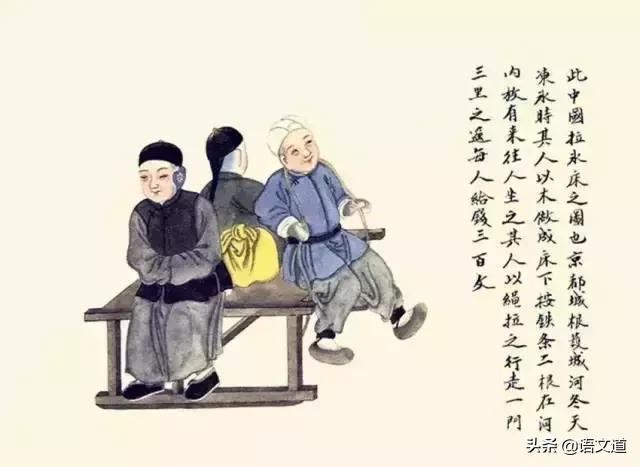 此中國拉氷床之圖也京都城根護城河冬天
凍氷時其人以木做成床下按鉄条二根在河
內放有来往人坐之其人以繩拉之行走一門
三里之遥每人給錢三百文
头条 @语文道